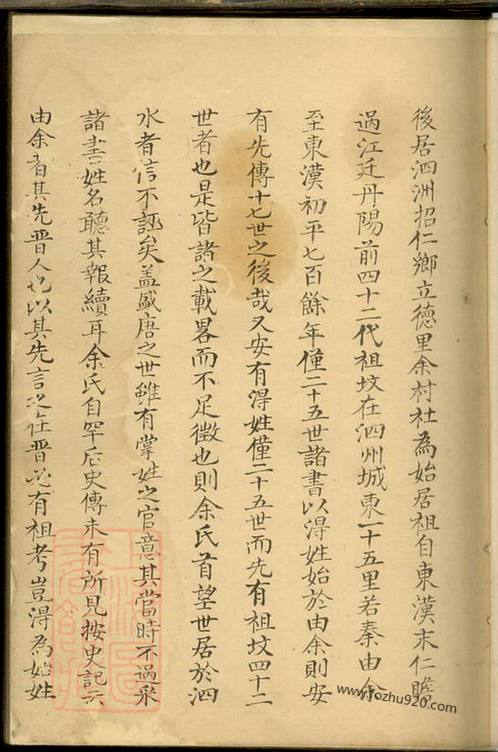 後居泗洲招仁鄉立德里余村社為始居祖自東漢末仁瞻
過江迁丹陽前四十二代祖坟在泗州城東一十五里若秦由余
至東漢初平七百餘年僅二十五世諸書以得姓始於由余則安
有先傳十七世之後哉又安有得姓僅二十五世而先有祖坟四十二
世者也是皆諸之載畧而不足徵也則余氏首望世居於泗
水者信不誣矣盖盛唐之世雖有掌姓之官意其當時不過采
諸書三姓名聽其報續耳余氏自罕后史傳未有所見按史記云
由余者其先晋人也以其先言之在晋必有祖考豈得為始姓
www.fozhu920.com